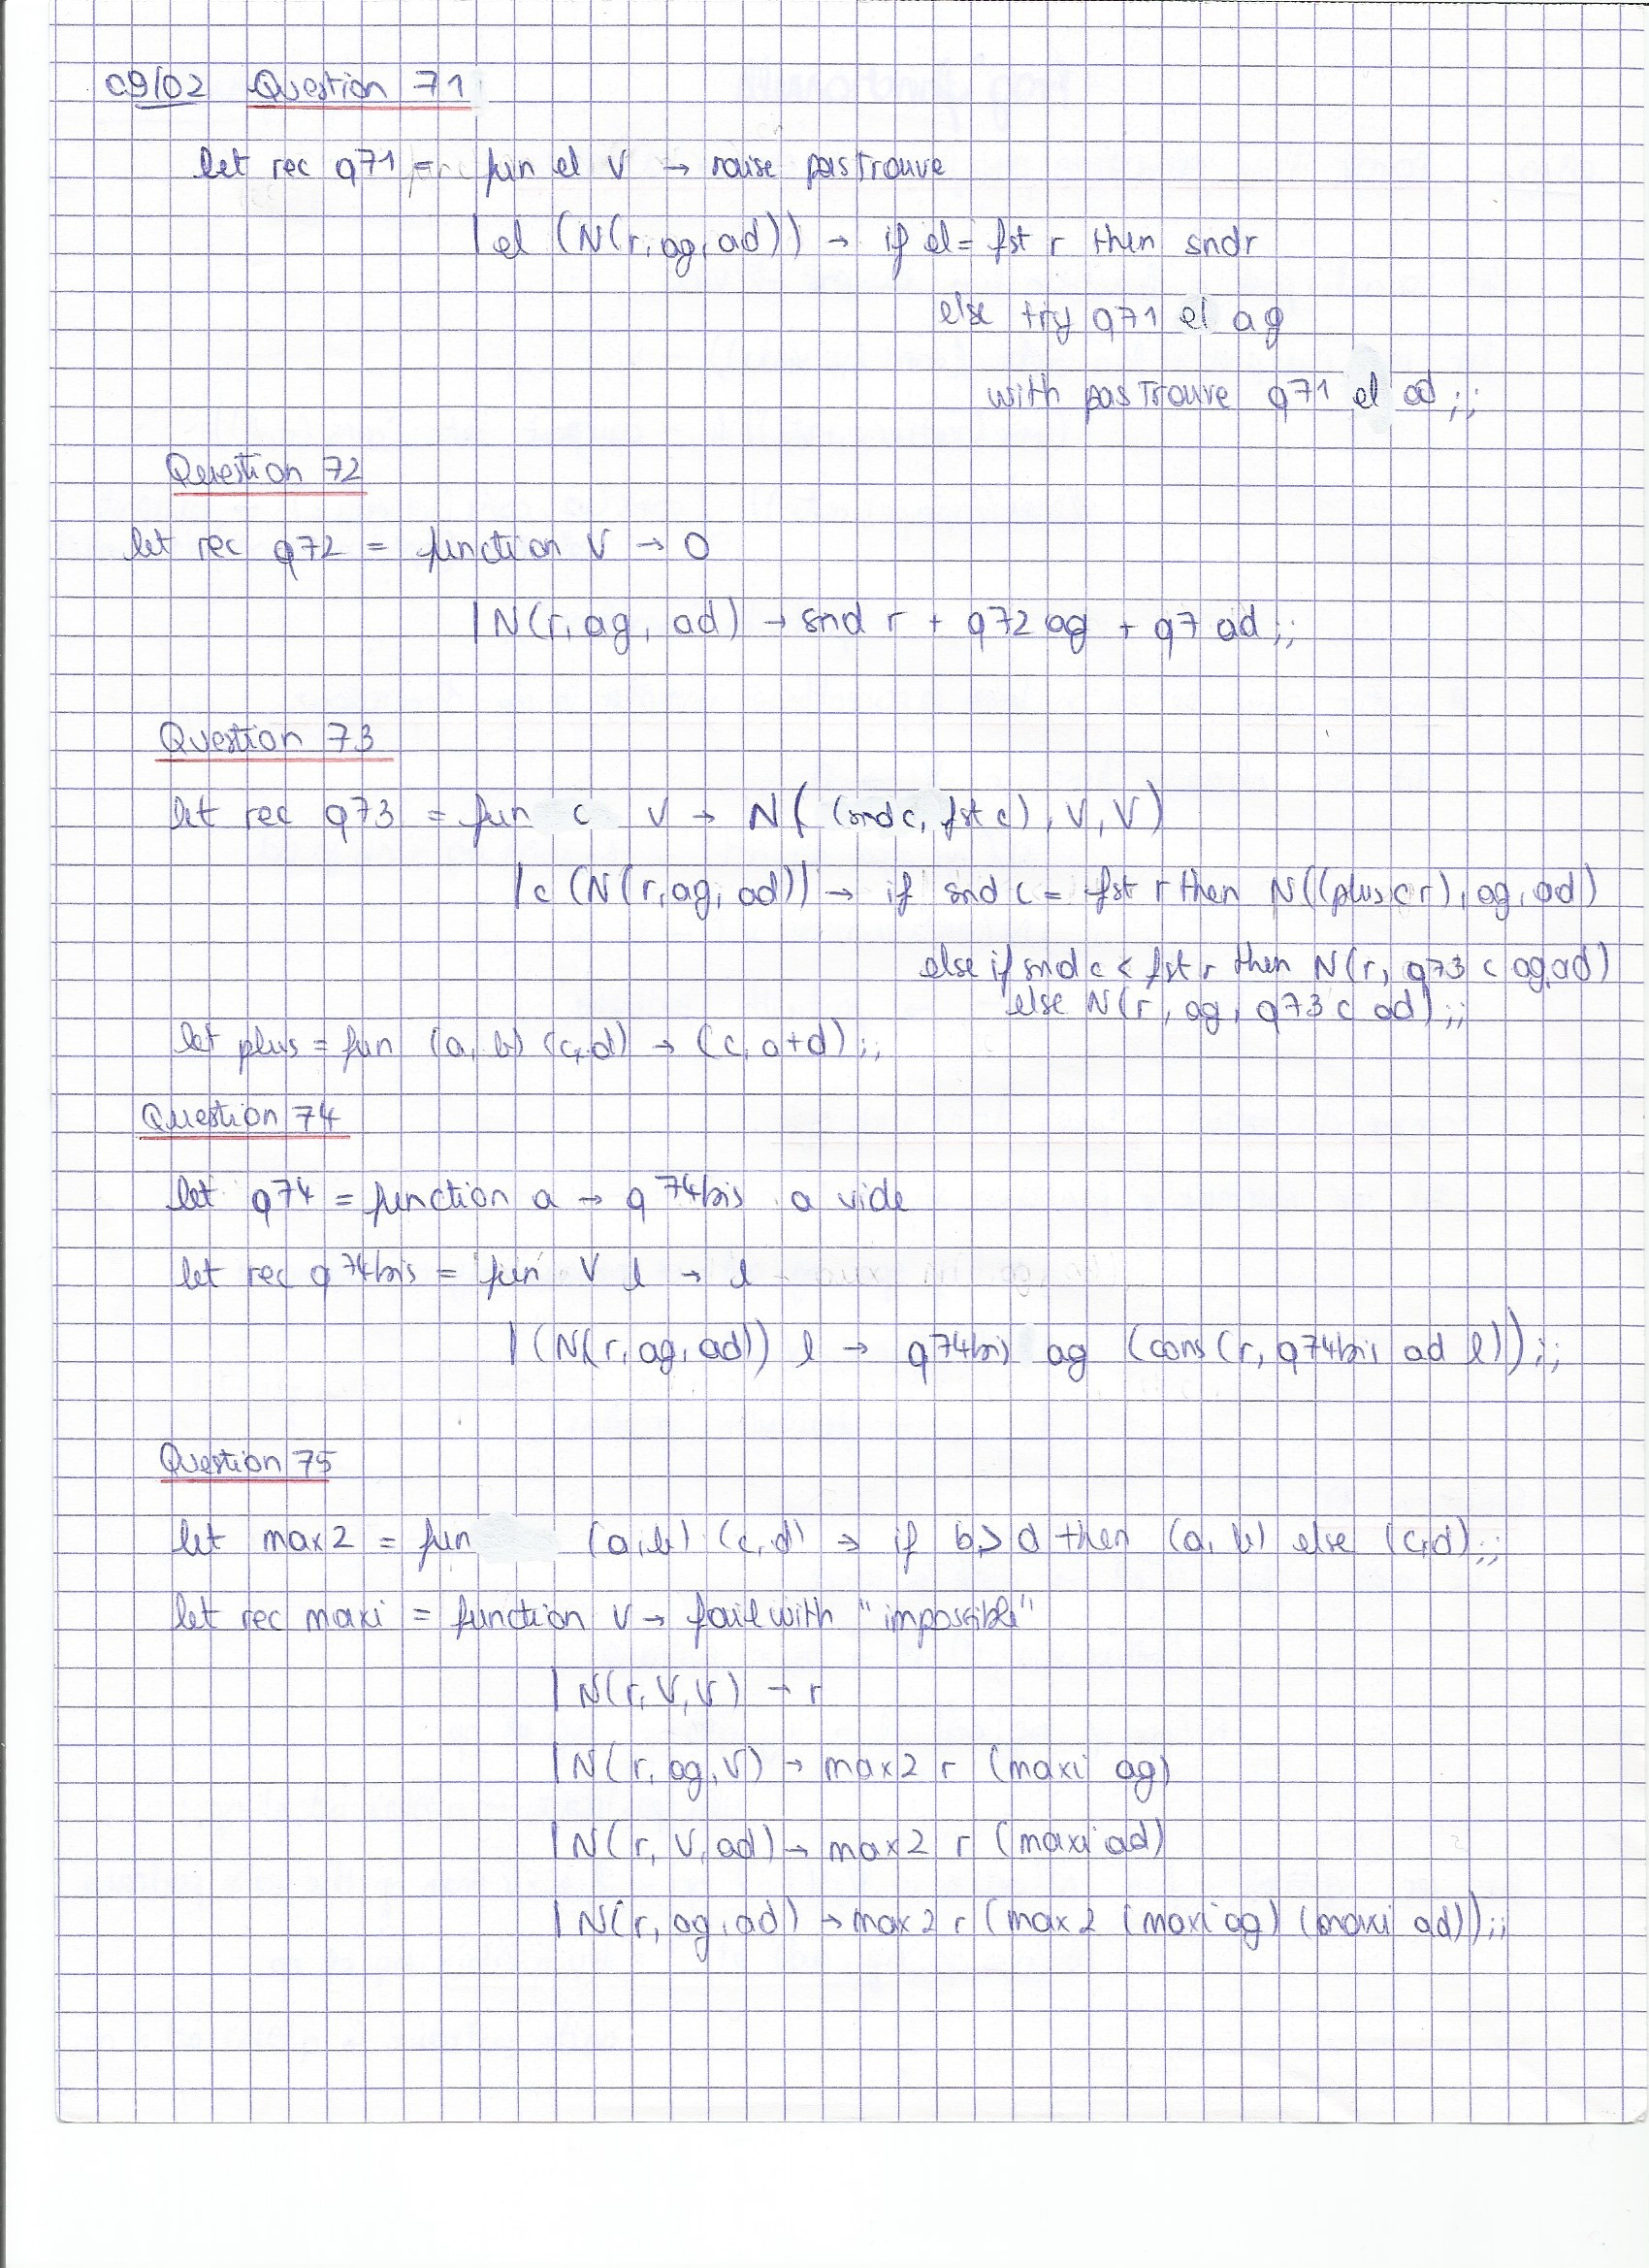 09/02 Question 71
let rec q71 = fun el V → raise pastrouve
| el (N(r, ag, ad)) → if el = fst r then snd r
else try q71 el ag
with pastrouve q71 el ad ;;
Question 72
let rec q72 = function V → 0
| N(r, ag, ad) → snd r + q72 ag + q7 ad ;;
Question 73
let rec q73 = fun c V → N( (snd c, fst c), V, V)
| c (N(r, ag, ad)) → if snd c = fst r then N((plus c r), ag, ad)
else if snd c < fst r then N(r, q73 c ag, ad)
else N(r, ag, q73 c ad) ;;
let plus = fun (a, b) (c, d) → (c, a+d) ;;
Question 74
let q74 = function a → q74bis a vide
let rec q74bis = fun V l → l
| (N(r, ag, ad)) l → q74bis ag (cons (r, q74bis ad l)) ;;
Question 75
let max2 = fun (a, b) (c, d) → if b > d then (a, b) else (c, d) ;;
let rec maxi = function V → failwith "impossible"
| N(r, V, V) → r
| N(r, ag, V) → max2 r (maxi ag)
| N(r, V, ad) → max2 r (maxi ad)
| N(r, ag, ad) → max2 r (max2 (maxi ag) (maxi ad)) ;;